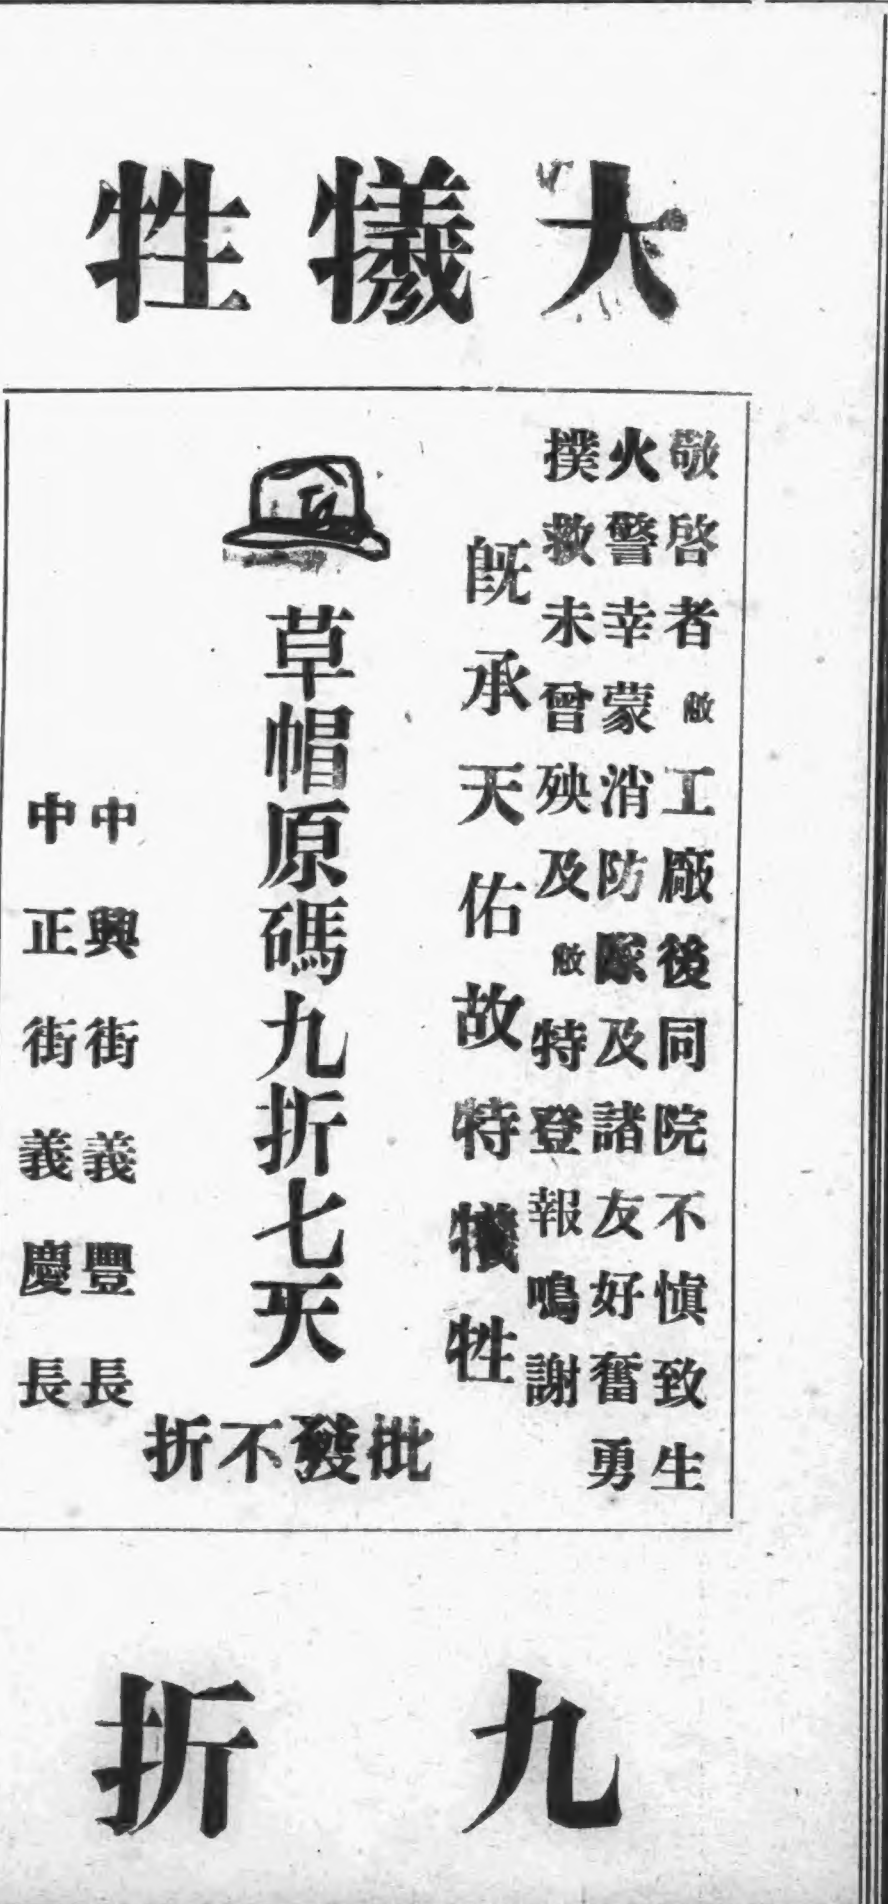 大犧牲
敬啓者敝工廠後同院不慎致生
火警幸蒙消防隊及諸友好奮勇
撲救未曾殃及敝特登報鳴謝
既承天佑故特犧牲
草帽原碼九折七天
批發不折
中興街義豐長
中正街義慶長
九折